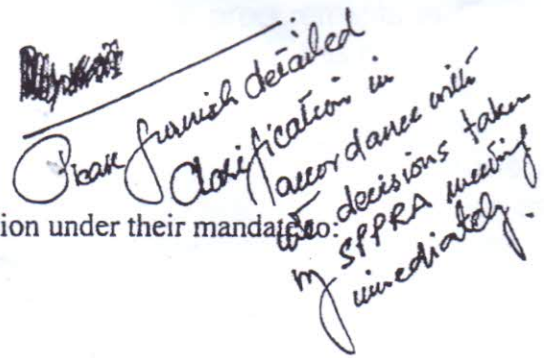 Please furnish detailed
clarification in
accordance with
the decisions taken
in SPPRA meeting
immediately.
ion under their mandate to: